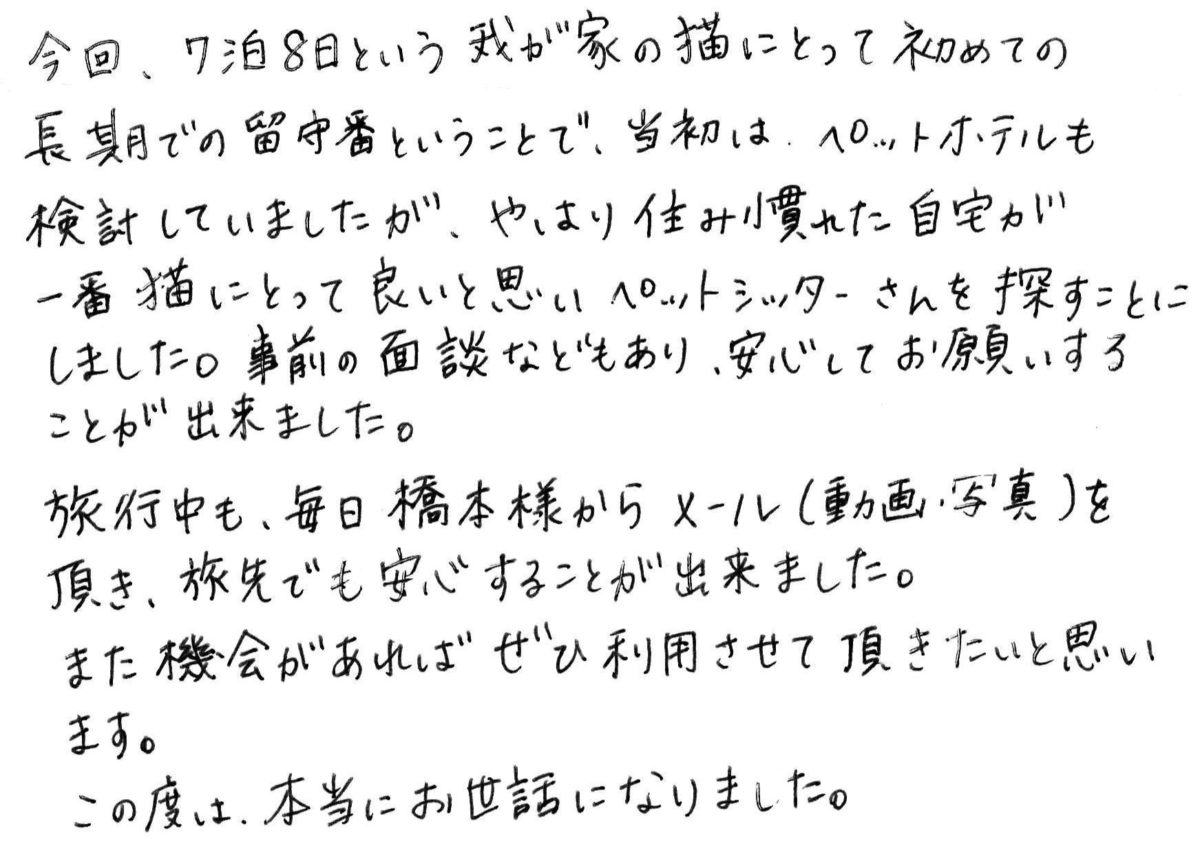 今回、7泊8日という我が家の猫にとって初めての
長期での留守番ということで、当初は、ペットホテルも
検討していましたが、やはり住み慣れた自宅が
一番猫にとって良いと思いペットシッターさんを探すことに
しました。事前の面談などもあり、安心してお願いする
ことが出来ました。
旅行中も、毎日橋本様からメール(動画・写真)を
頂き、旅先でも安心することが出来ました。
また機会があればぜひ利用させて頂きたいと思い
ます。
この度は、本当にお世話になりました。